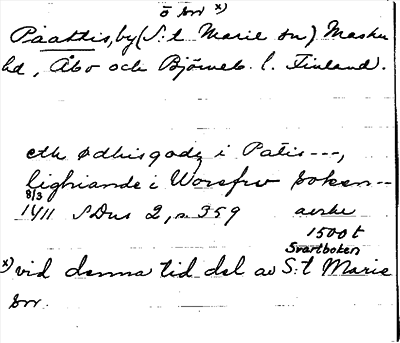 ö sn x)
Påattis, by (S:t Marie sn) Masku
hd, Åbo och Björneb. l. Finland.
eth ødhisgodz i Patis ---,
lighiande i Worefrw soken --
8/3
1411 SDns 2, s. 359 avskr
1500 t
Svartboken
x) vid denna tid del av S:t Marie
sn.